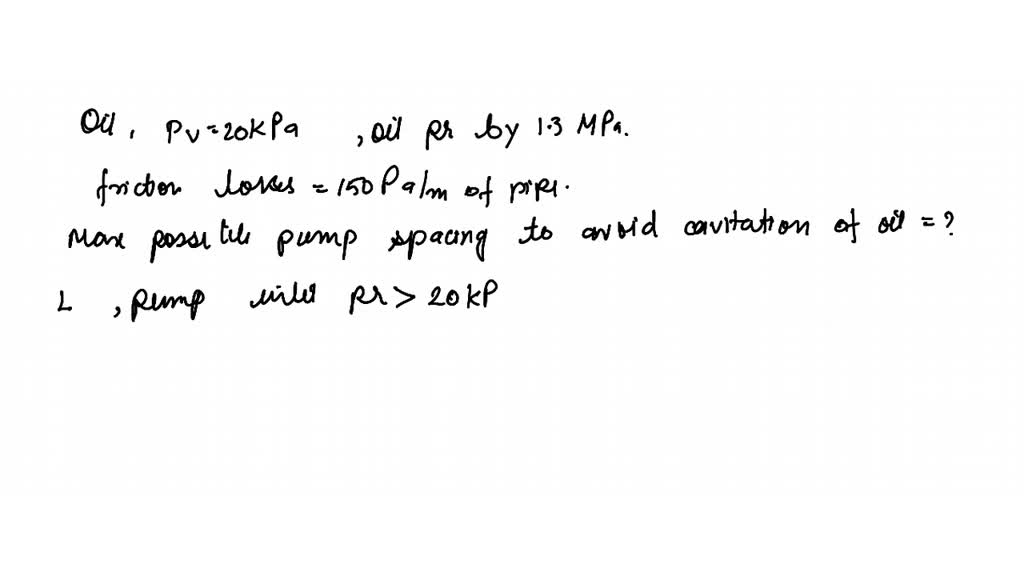 Oil, Pv = 20kPa , oil pr by 1.3 MPa.
friction losses = 150 Pa/m of pipe.
Max possible pump spacing to avoid cavitation of oil = ?
L , pump inlet pr > 20kP